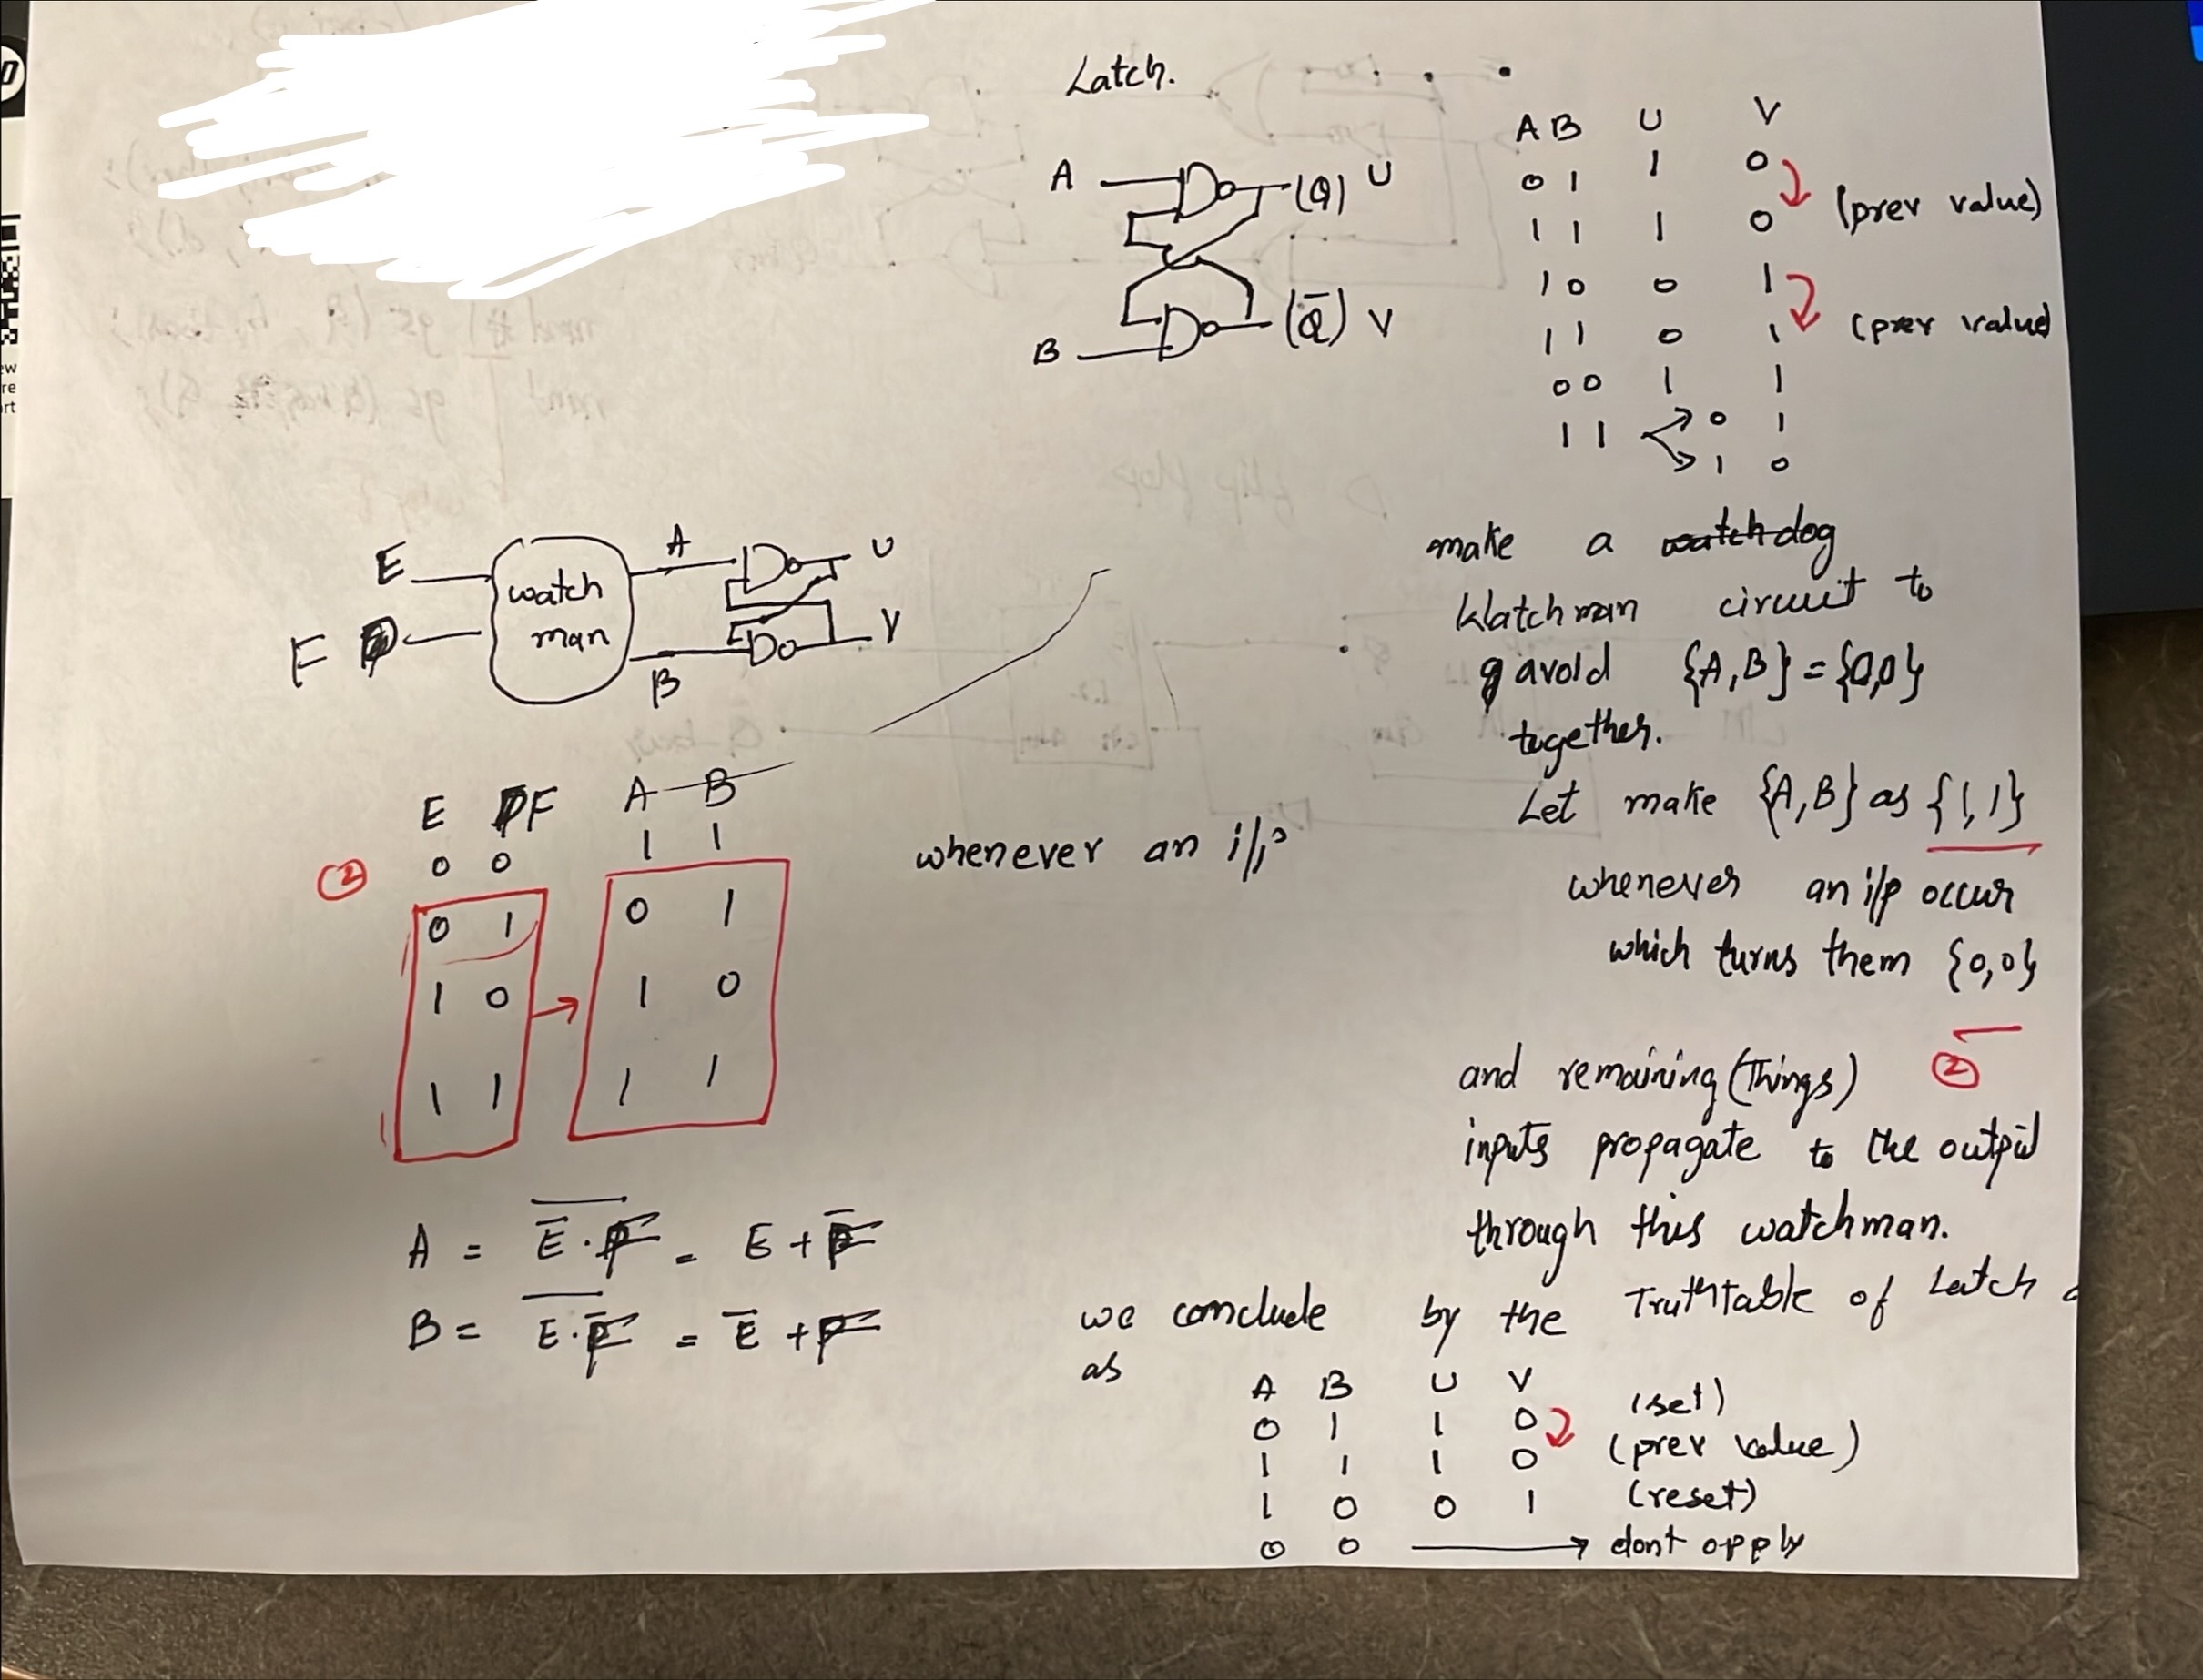 Latch.
A B U V
A (Q) U
0 1 1 0
(prev value)
1 1 1 0
1 0 0 1
B (Q̅) V
1 1 0 1
(prev value)
0 0 1 1
1 1 0 1
1 0
E watch man A U
F B V
make a watchdog
Watchman circuit to
avoid {A,B} = {0,0}
together.
Let make {A,B} as {1,1}
whenever an i/p occur
which turns them {0,0}
②
and remaining (things)
inputs propagate to the output
through this watchman.
E F A B
② 0 0 1 1
whenever an i/p
0 1 0 1
1 0 1 0
1 1 1 1
A = \overline{E̅ · F} = E + F̅
B = \overline{E · F̅} = E̅ + F
we conclude by the Truthtable of Latch
as
A B U V
0 1 1 0 (set)
1 1 1 0 (prev value)
1 0 0 1 (reset)
0 0 → dont apply
ew
re
ort